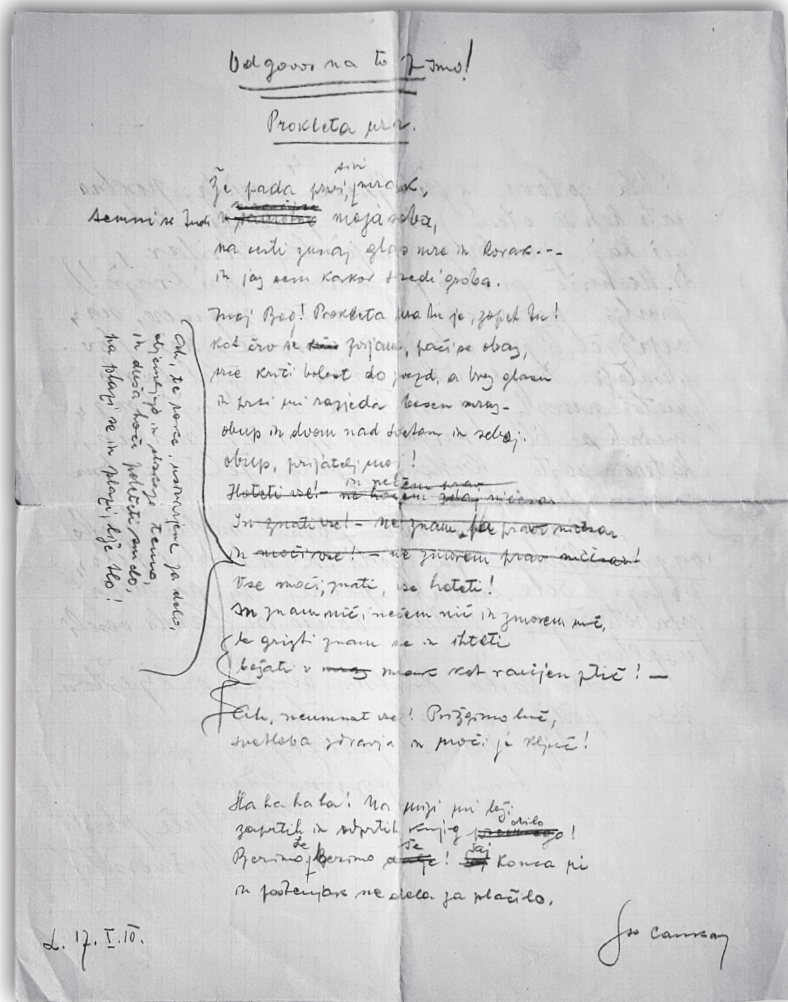 Odgovor na to pismo!
Prokleta ura.
sivi
Že pada prvi, mrak,
temni se tudi moja soba,
na cesti zunaj glas mre in korak.--
in jaz sem kakor sredi groba.
Moj Bog! Prokleta ura tu je, zopet tu!
kot črv se zvijam, pači se obraz,
vse kriči bolest do zvezd, a brez glasu
in prsi mi razjeda besen mraz-
obup in dvom nad svetom in seboj.
obup, prijatelj moj!
in nečem prav
Hoteti vse! - ničesar
In znati vse! - ne znam, prav ničesar
in moči vse! - ne zmorem prav ničesar!
Vse moči, znati, vse hoteti!
In znam nič, nečem nič in zmorem nič,
le gristi znam se in trteti
bežati v mrak kot ranjen ptič! -
Ah, neumnost vse! Prižgimo luč,
svetloba zdravja in moči je ključ!
Ha ha ha ha! Na mizi mi leži
zaprtih in odprtih knjig obilo!
Berimo, le berimo še! saj konca ni
in poštenjak ne dela za plačilo.
Oh, te roke, ustvarjene za delo,
objemajo in temno,
in duša hoče poleteti smelo,
pa plazi se in plazi bliže tlo!
L. 17. I. 10.
Izo Cankar